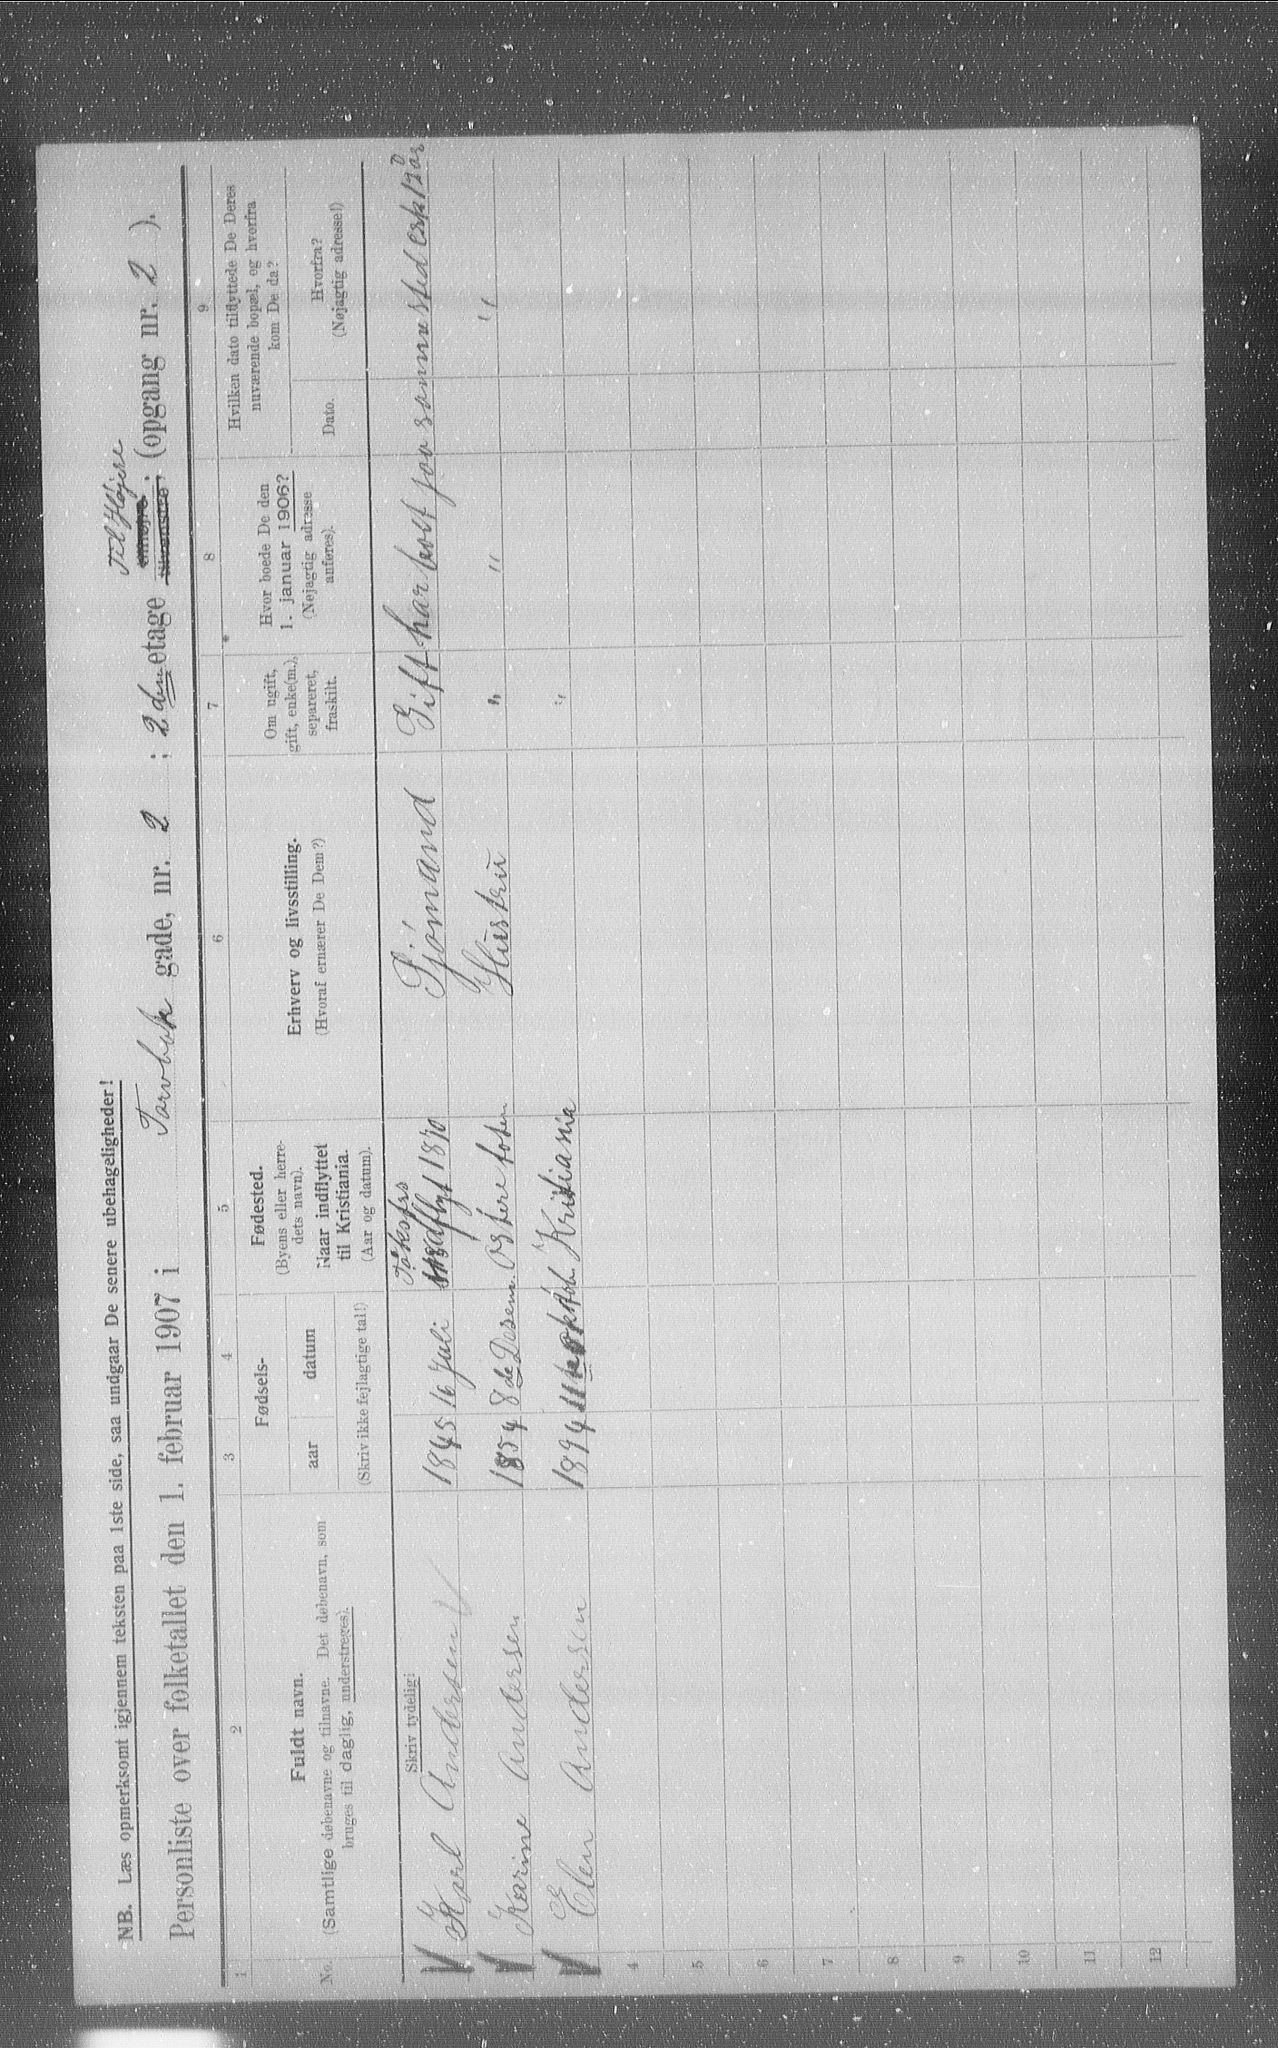 NB. Læs opmerksomt igjennem teksten paa 1ste side, saa undgaar De senere ubehageligheder!
Til Højere
Personliste over folketallet den 1. februar 1907 i Torvbak gade, nr. 2 ; 2 den etage tilvenstre, (opgang nr. 2 ).
1 2 3 4 5 6 7 8 9
No.
Fuldt navn.
(Samtlige døbenavne og tilnavne. Det døbenavn, som
bruges til daglig, understreges).
Fødsels-
aar datum
(Skriv ikke fejlagtige tal!)
Fødested.
(Byens eller herre-
dets navn).
Naar indflyttet
til Kristiania.
(Aar og datum).
Erhverv og livsstilling.
(Hvoraf ernærer De Dem?)
Om ugift,
gift, enke(m.),
separeret,
fraskilt.
Hvor boede De den
1. januar 1906?
(Nøjagtig adresse
anføres).
Hvilken dato tilflyttede De Deres
nuværende bopæl, og hvorfra
kom De da?
Dato.
Hvorfra?
(Nøjagtig adresse!)
Skriv tydelig!
Karl Andersen 1845 16 Juli indflyt 1870 Sjømand Gift har bott paa samme sted 12 år
Karine Andersen 1854 8 de Desem. Østere toten Hustru " " "
Elen Andersen 1894 11 oktob Kristiania "
4
5
6
7
8
9
10
11
12